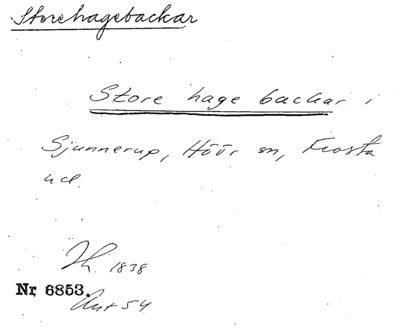 Storehagebackar
Store hage backar i
Sjunnerup, Höör sn, Frosta
hd.
1838
Nr 6853.
Akt 54